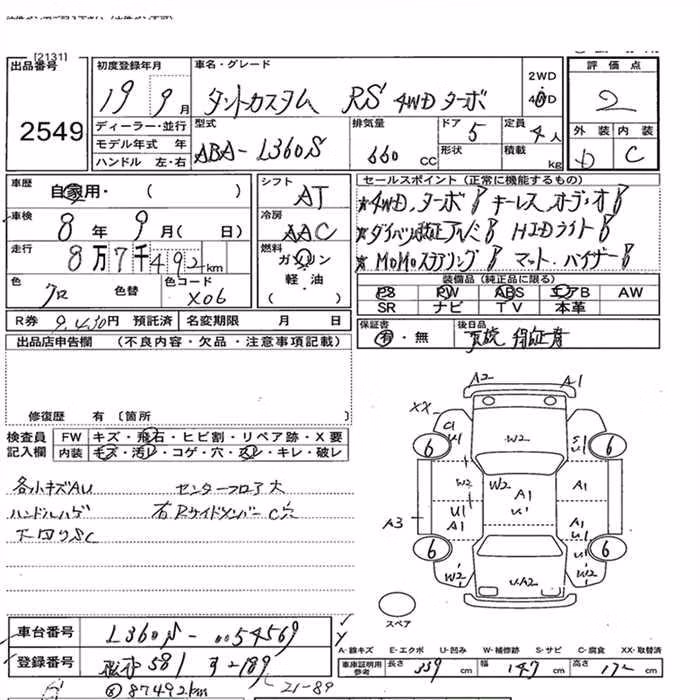 [2131]
出品番号 2549
初度登録年月 19 9月
ディーラー・並行
モデル年式 年
ハンドル 左・右
車名・グレード タントカスタム RS 4WD ターボ
2WD
4WD
型式 ABA-L360S
排気量 660 cc
ドア 5
形状
定員 4人
積載 kg
評価点
2
外装 内装
D C
車歴 自家用・( )
車検 8年 9月( 日)
走行 8万7千492km
色 クロ 色替 色コード X06
シフト AT
冷房 AAC
燃料 ガソリン
軽・油
( )
セールスポイント(正常に機能するもの)
★4WD、ターボ キーレス オーディオ
★ダイハツ純正アルミ HIDライト
★MOMOステアリング マット・バイザー
装備品(純正品に限る)
PS PW ABS エアB AW
SR ナビ TV 本革
R券 9,430円 預託済 名変期限 月 日
保証書 有・無 後日品 取説
出品店申告欄 (不良内容・欠品・注意事項記載)
修復歴 有〔箇所 〕
検査員記入欄 FW キズ・飛石・ヒビ割・リペア跡・X要
内装 キズ・汚レ・コゲ・穴・スレ・キレ・破レ
各小キズAU センターフロア大
ハンドルハゲ 右Rサイドメンバー C穴
下回りSC
A2 A1
XX
C1 U1 W2 S1 U1
6 6
W2 W2 A1 A1
A3 U1 A1 U1 U1 A1
6 6
U1 W2 U.A2 U1 W2
スペア
車台番号 L360S-0054569
登録番号 581 す2-189
87492km 21-89
A・線キズ E・エクボ U・凹み W・補修跡 S・サビ C・腐食 XX・取替済
車庫証明用参考 長さ 339 cm 幅 147 cm 高さ 172 cm